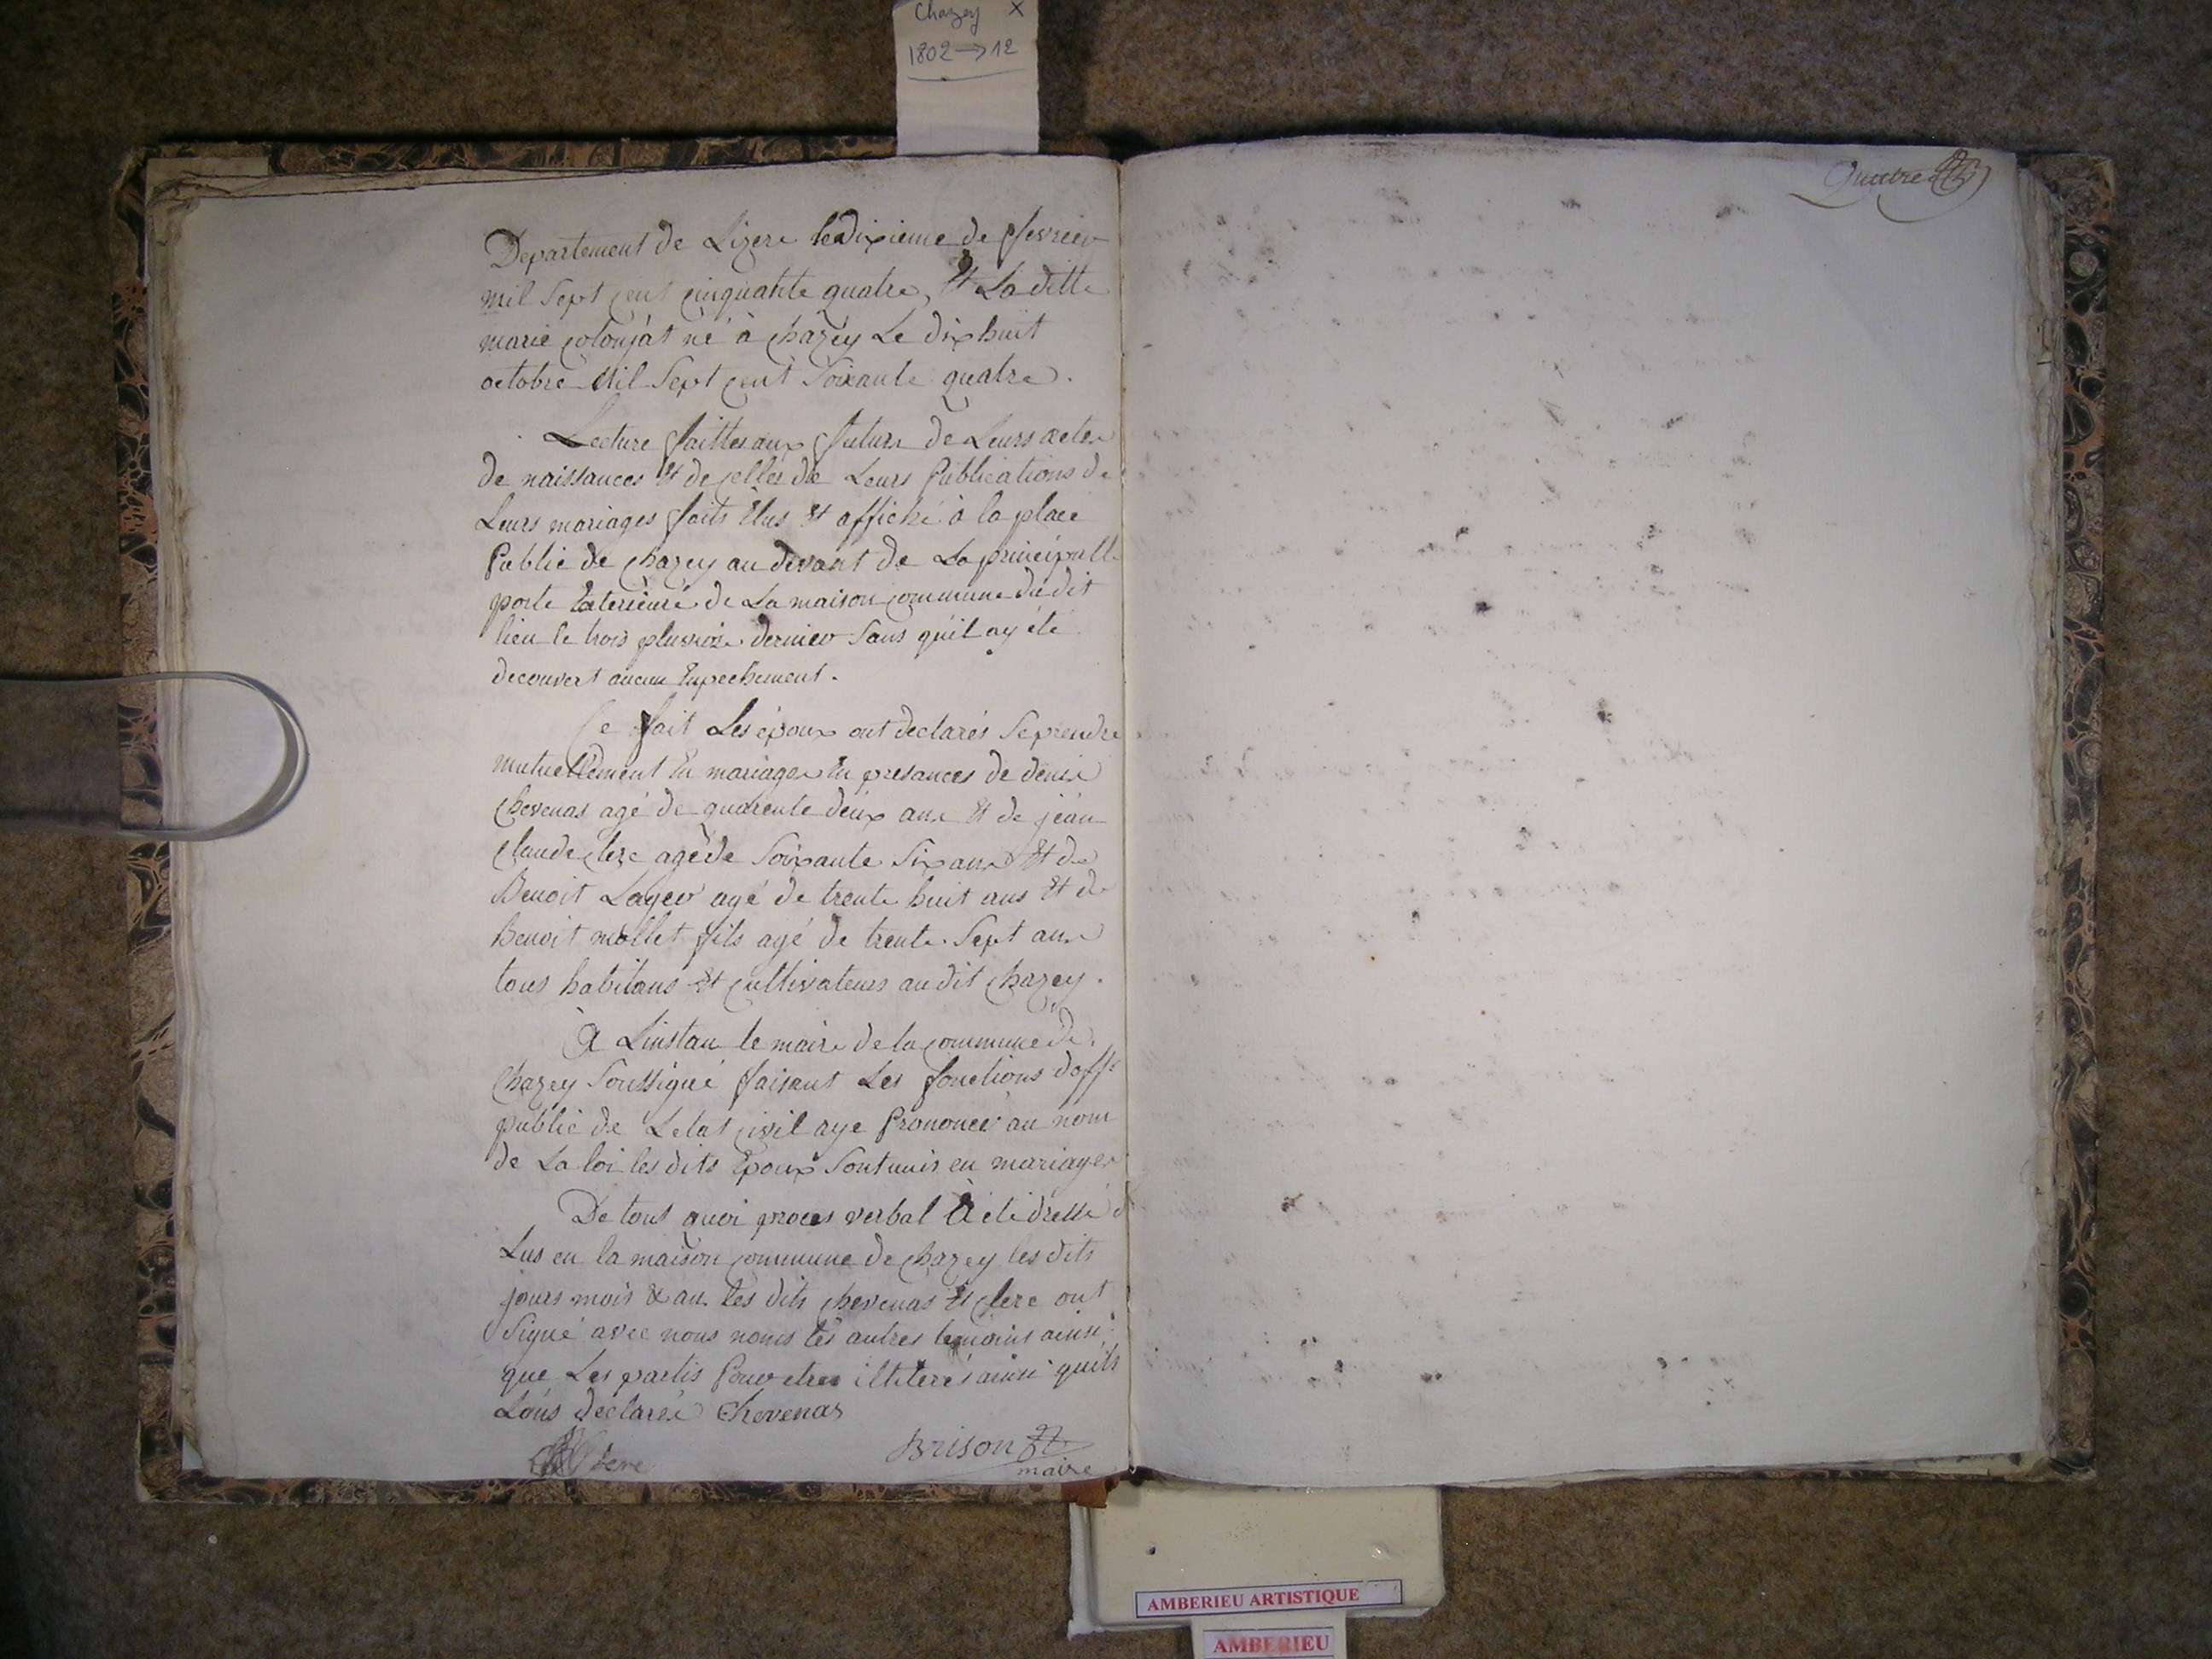 Chazey X
1802 → 12
Quatre
Departement de Lizere le dixieme de fevrier
mil Sept cent cinquante quatre, Et La ditte
marie colonjat né à chazey Le dix huit
octobre Mil Sept cent Soixante quatre.
Lecture faittes aux futurs de Leurs actes
de naissances Et de celles de Leurs Publications de
Leurs mariages faits Élus Et affiché à la place
Public de chazey au devant de La principalle
porte Exterieure de La maison commune dudit
lieu le trois pluvioze dernier Sans qu'il ay été
decouvert aucun Enpechement.
Ce fait Les époux ont declarés Se prendre
mutuellement En mariages En presances de denis
chevenas agé de quarente deux ans Et de jean
Claude Clere agé de Soixante Six ans Et de
Benoit Layer agé de trente huit ans Et de
Benoit mollet fils agé de trente Sept ans
tous habitans Et cultivateurs audit chazey.
À Linstan le maire de la commune de
Chazey Soussigné faisant Les fonctions d'offe
public de Letat civil aye Prononcé au nom
de La loi les dits Époux Sont unis en mariages
De tout quoi proces verbal À été dressé &
Lus en la maison commune de chazey les dits
jours mois & an. Les dits chevenas Et clere ont
Signé avec nous nomis les autres temoins ainsi
que Les partis Pour etres illiterés ainsi qu'ils
L'ons declaré Chevenas
Clere
Brison
maire
AMBERIEU ARTISTIQUE
AMBERIEU